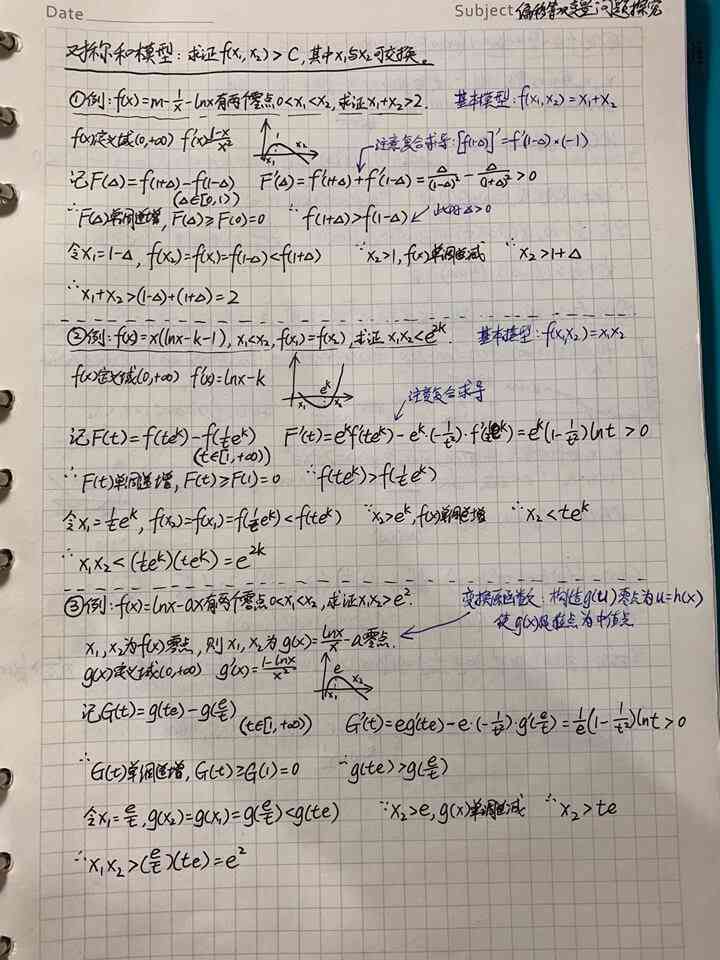 Date
Subject: 偏移常规题型问题探究
对称和模型：求证f(x₁,x₂)>C,其中x₁与x₂可交换。
①例：f(x)=m-1/x-lnx有两个零点0<x₁<x₂,求证x₁+x₂>2. 基本模型：f(x₁,x₂)=x₁+x₂
f(x)定义域(0,+∞) f'(x)=(1-x)/x² 1 x₁ x₂ 注意复合求导：[f(1-Δ)]'=f'(1-Δ)×(-1)
记F(Δ)=f(1+Δ)-f(1-Δ) (Δ∈[0,1)) F'(Δ)=f'(1+Δ)+f'(1-Δ)=Δ/(1-Δ)²-Δ/(1+Δ)²>0
∴F(Δ)单调递增,F(Δ)≥F(0)=0 ∴f(1+Δ)>f(1-Δ) 此时Δ>0
令x₁=1-Δ,f(x₂)=f(x₁)=f(1-Δ)<f(1+Δ) ∵x₂>1,f(x)单调递减 ∴x₂>1+Δ
∴x₁+x₂>(1-Δ)+(1+Δ)=2
②例：f(x)=x(lnx-k-1),x₁<x₂,f(x₁)=f(x₂),求证x₁x₂<e^{2k}. 基本模型：f(x₁,x₂)=x₁x₂
f(x)定义域(0,+∞) f'(x)=lnx-k e^k x₁ x₂
注意复合求导
记F(t)=f(te^k)-f(1/t e^k) (t∈[1,+∞)) F'(t)=e^k f'(te^k)-e^k·(-1/t²)·f'(1/t e^k)=e^k(1-1/t²)lnt>0
∴F(t)单调递增,F(t)≥F(1)=0 ∴f(te^k)>f(1/t e^k)
令x₁=1/t e^k,f(x₂)=f(x₁)=f(1/t e^k)<f(te^k) ∵x₂>e^k,f(x)单调递增 ∴x₂<te^k
∴x₁x₂<(1/t e^k)(te^k)=e^{2k}
③例：f(x)=lnx-ax有两个零点0<x₁<x₂,求证x₁x₂>e². 变换原函数：构造g(u)零点为u=h(x)
使g(x)极值点为中值点
x₁,x₂为f(x)零点,则x₁,x₂为g(x)=lnx/x-a零点.
g(x)定义域(0,+∞) g'(x)=(1-lnx)/x² e x₁ x₂
记G(t)=g(te)-g(e/t) (t∈[1,+∞)) G'(t)=eg'(te)-e·(-1/t²)·g'(e/t)=1/e(1-1/t²)lnt>0
∴G(t)单调递增,G(t)≥G(1)=0 ∴g(te)>g(e/t)
令x₁=e/t,g(x₂)=g(x₁)=g(e/t)<g(te) ∵x₂>e,g(x)单调递减 ∴x₂>te
∴x₁x₂>(e/t)(te)=e²